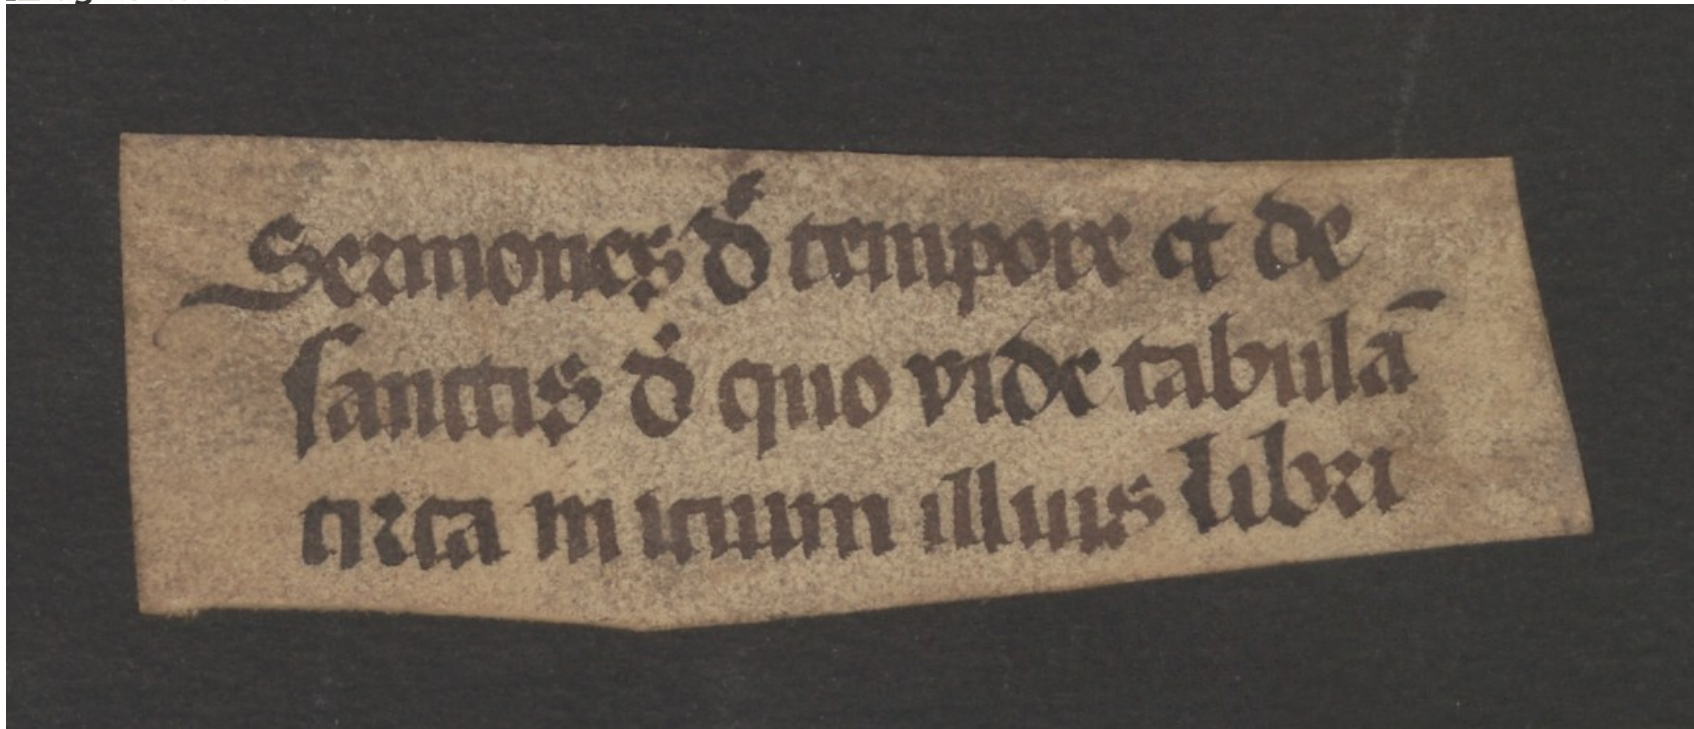 Sermones d̾ tempore et de
sanctis d̾ quo vide tabulā
circa in icium illius libri